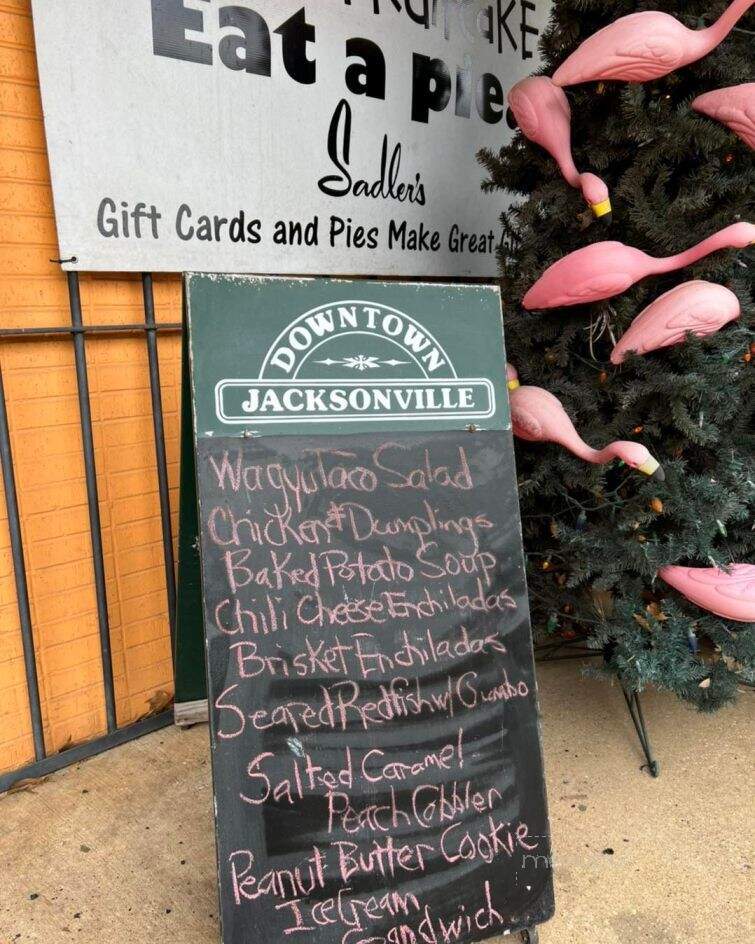 Eat a pie.
Sadler's
Gift Cards and Pies Make Great
DOWNTOWN
JACKSONVILLE
Wagyu Taco Salad
Chicken & Dumplings
Baked Potato Soup
Chili Cheese Enchiladas
Brisket Enchiladas
Seared Redfish w/ Gumbo
Salted Caramel
Peach Cobbler
Peanut Butter Cookie
Ice Cream
Sandwich